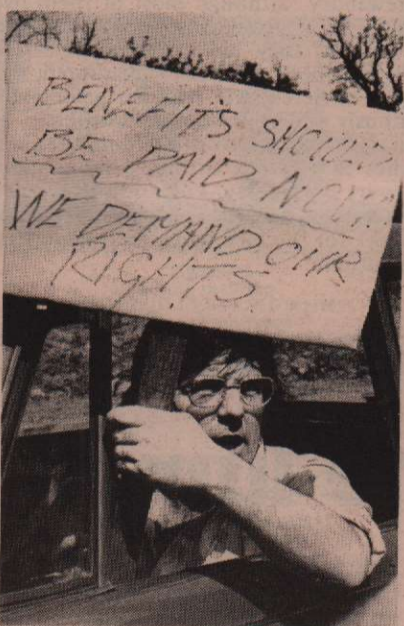 BENEFITS SHOULD
BE PAID NOW.
WE DEMAND OUR
RIGHTS.